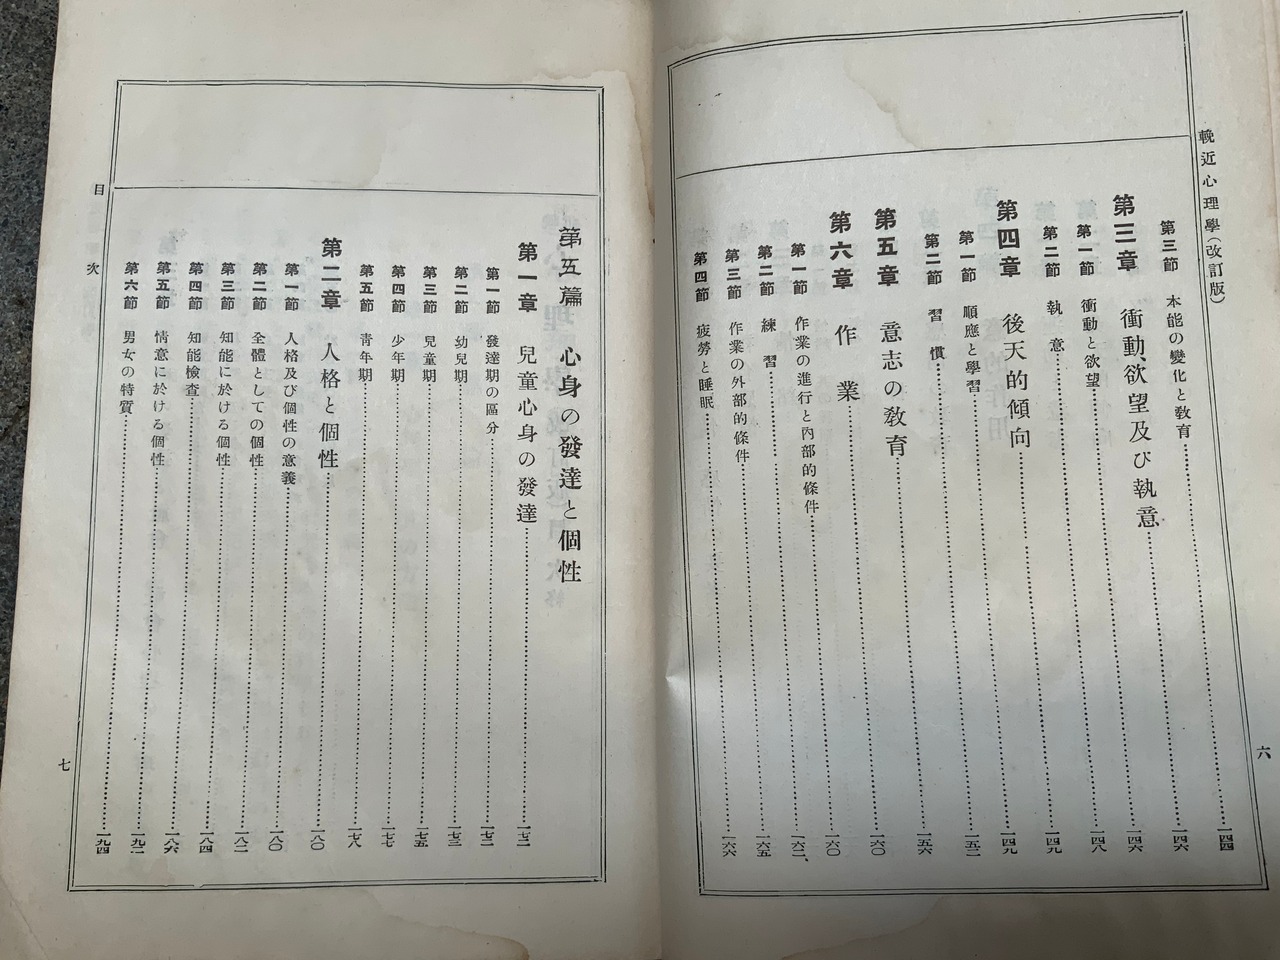 輓近心理學(改訂版)
六
第三節 本能の變化と敎育 一四四
第三章 衝動、欲望及び執意 一四六
第一節 衝動と欲望 一四六
第二節 執意 一四八
第四章 後天的傾向 一四九
第一節 順應と學習 一四九
第二節 習慣 一五二
第五章 意志の敎育 一五六
第六章 作業 一六〇
第一節 作業の進行と內部的條件 一六〇
第二節 練習 一六二
第三節 作業の外部的條件 一六五
第四節 疲勞と睡眠 一六六
第五篇 心身の發達と個性
第一章 兒童心身の發達 一七二
第一節 發達期の區分 一七二
第二節 幼兒期 一七三
第三節 兒童期 一七五
第四節 少年期 一七七
第五節 靑年期 一七八
第二章 人格と個性 一八〇
第一節 人格及び個性の意義 一八〇
第二節 全體としての個性 一八二
第三節 知能に於ける個性 一八四
第四節 知能檢査 一八六
第五節 情意に於ける個性 一九二
第六節 男女の特質 一九四
目次
七